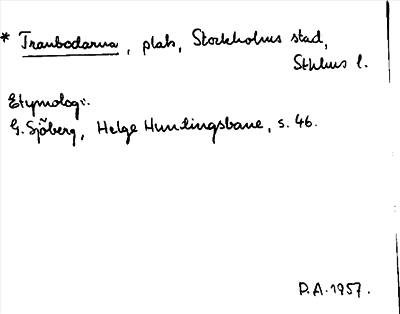 * Tranbodarna, plats, Stockholms stad,
Sthlms l.
Etymologi:
G. Sjöberg, Helge Hundingsbane, s. 46.
D.A. 1957.